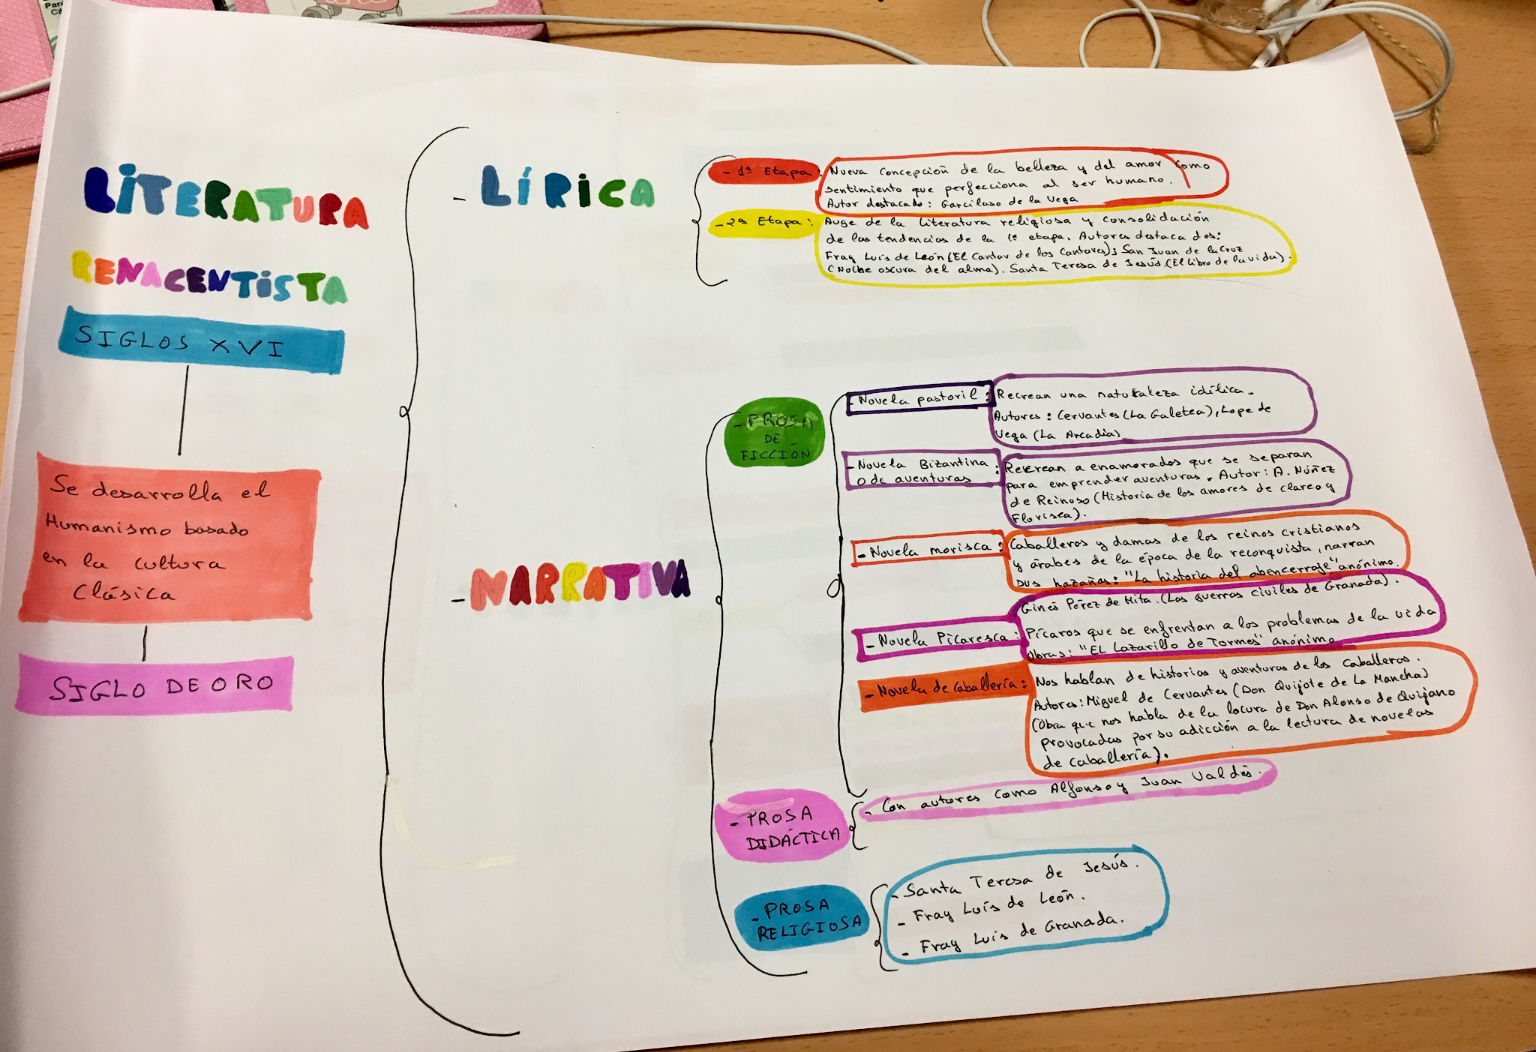 LITERATURA
RENACENTISTA
SIGLOS XVI
Se desarrolla el
Humanismo basado
en la cultura
Clásica
SIGLO DE ORO
- LÍRICA
- 1ª Etapa:
Nueva Concepción de la belleza y del amor como
sentimiento que perfecciona al ser humano.
Autor destacado: Garcilaso de la Vega
- 2ª Etapa:
Auge de la literatura religiosa y consolidación
de las tendencias de la 1ª etapa. Autores destacados:
Fray Luis de León (El Cantar de los Cantares); San Juan de la Cruz
(Noche oscura del alma). Santa Teresa de Jesús (El libro de la vida).
- NARRATIVA
- PROSA
DE
FICCIÓN
- Novela pastoril:
Recrean una naturaleza idílica.
Autores: Cervantes (La Galetea), Lope de
Vega (La Arcadia)
- Novela Bizantina:
o de aventuras
Recrean a enamorados que se separan
para emprender aventuras. Autor: A. Núñez
de Reinoso (Historia de los amores de clareo y
Florisea).
- Novela morisca:
Caballeros y damas de los reinos cristianos
y árabes de la época de la reconquista, narran
sus hazañas: "La historia del abencerraje" anónimo.
Ginés Pérez de Hita. (Las guerras civiles de Granada).
- Novela Picaresca:
Pícaros que se enfrentan a los problemas de la vida
Obras: "EL Lazarillo de Tormes" anónimo
- Novela de caballería:
Nos hablan de historias y aventuras de los Caballeros.
Autores: Miguel de Cervantes (Don Quijote de La Mancha)
(Obra que nos habla de la locura de Don Alonso de Quijano
provocadas por su adicción a la lectura de novelas
de caballería).
- PROSA
DIDÁCTICA
- Con autores como Alfonso y Juan Valdés.
- PROSA
RELIGIOSA
- Santa Teresa de Jesús.
- Fray Luís de León.
- Fray Luis de Granada.